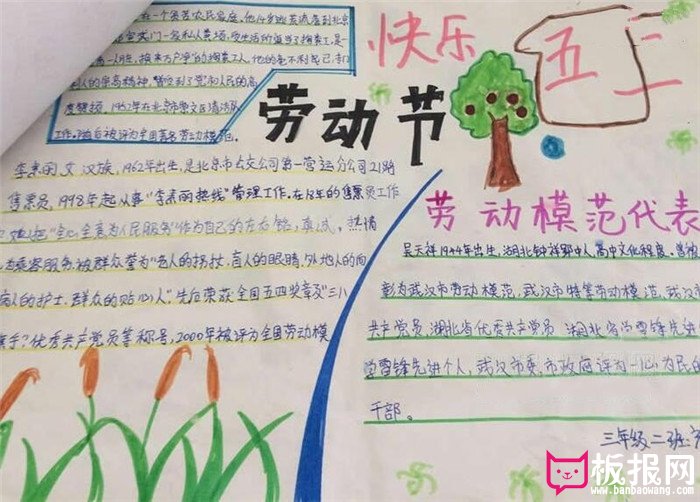 在一个贫苦农民家庭,他14岁逃荒流落到北京
一家私人粪场,受生活所迫当了掏粪工,是
人的崇高精神,赞
工作。随后被评为全国著名劳动模范。
快乐
五
三
劳动节
李素丽女汉族,1962年出生,是北京市公交公司第一营运分公司21路
售票员,1998年起从事“李素丽热线”管理工作。在18年的售票员工作
把“全心全意为人民服务”作为自己的座右铭,真诚,热情
乘客服务,被群众誉为“老人的拐杖,盲人的眼睛,外地人的向
病人的护士,群众的贴心人”,先后荣获全国五四奖章及“三八
旗手”优秀共产党员等称号,2000年被评为全国劳动模
劳动模范代表
吴天祥1944年出生,湖北钟祥郢中人,高中文化程度。曾被
彰为武汉市劳动模范,武汉市特等劳动模范,武汉
共产党员湖北省优秀共产党员 湖北省学雷锋先进
学雷锋先进个人,武汉市委,市政府评为 心为民的
干部。
三年级二班
板报网
www.banbaowang.com